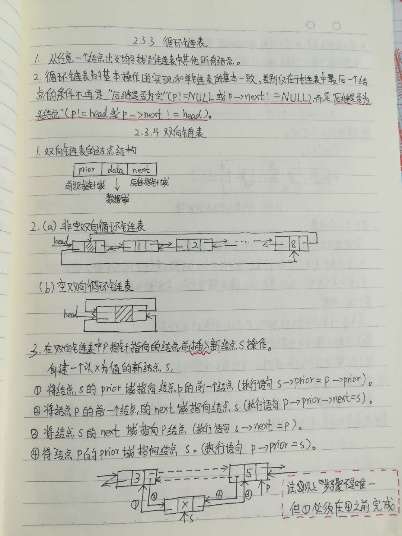 2.3.3 循环链表
1. 从任意一个结点出发均可找到链表中其他所有结点。
2. 循环链表的基本操作的实现和单链表的基本一致，差别仅在于链表中最后一个结
点的条件不再是"后继是否为空"(p!=NULL 或 p->next!=NULL)，而是"后继是否为
头结点"(p!=head 或 p->next!=head)。
2.3.4 双向链表
1. 双向链表的结点结构
prior data next
前驱指针域 后继指针域
数据域
2. (a) 非空双向循环链表
head 1 2 … 8
(b) 空双向循环链表
head
3. 在双向链表中P指针指向的结点前插入新结点S操作。
创建一个以X为值的新结点S。
① 将结点 s 的 prior 域指向结点 p 的前一个结点 (执行语句 s->prior = p->prior)。
② 将结点 p 的前一个结点的 next 域指向结点 s (执行语句 p->prior->next=s)。
③ 将结点 s 的 next 域指向 p 结点 (执行语句 s->next =p)。
④ 将结点 p 的 prior 域指向结点 s。(执行语句 p->prior =s)。
3 5
① ② ③ ④ P
X
S
注:以上步骤不唯一
但①必须在④之前完成